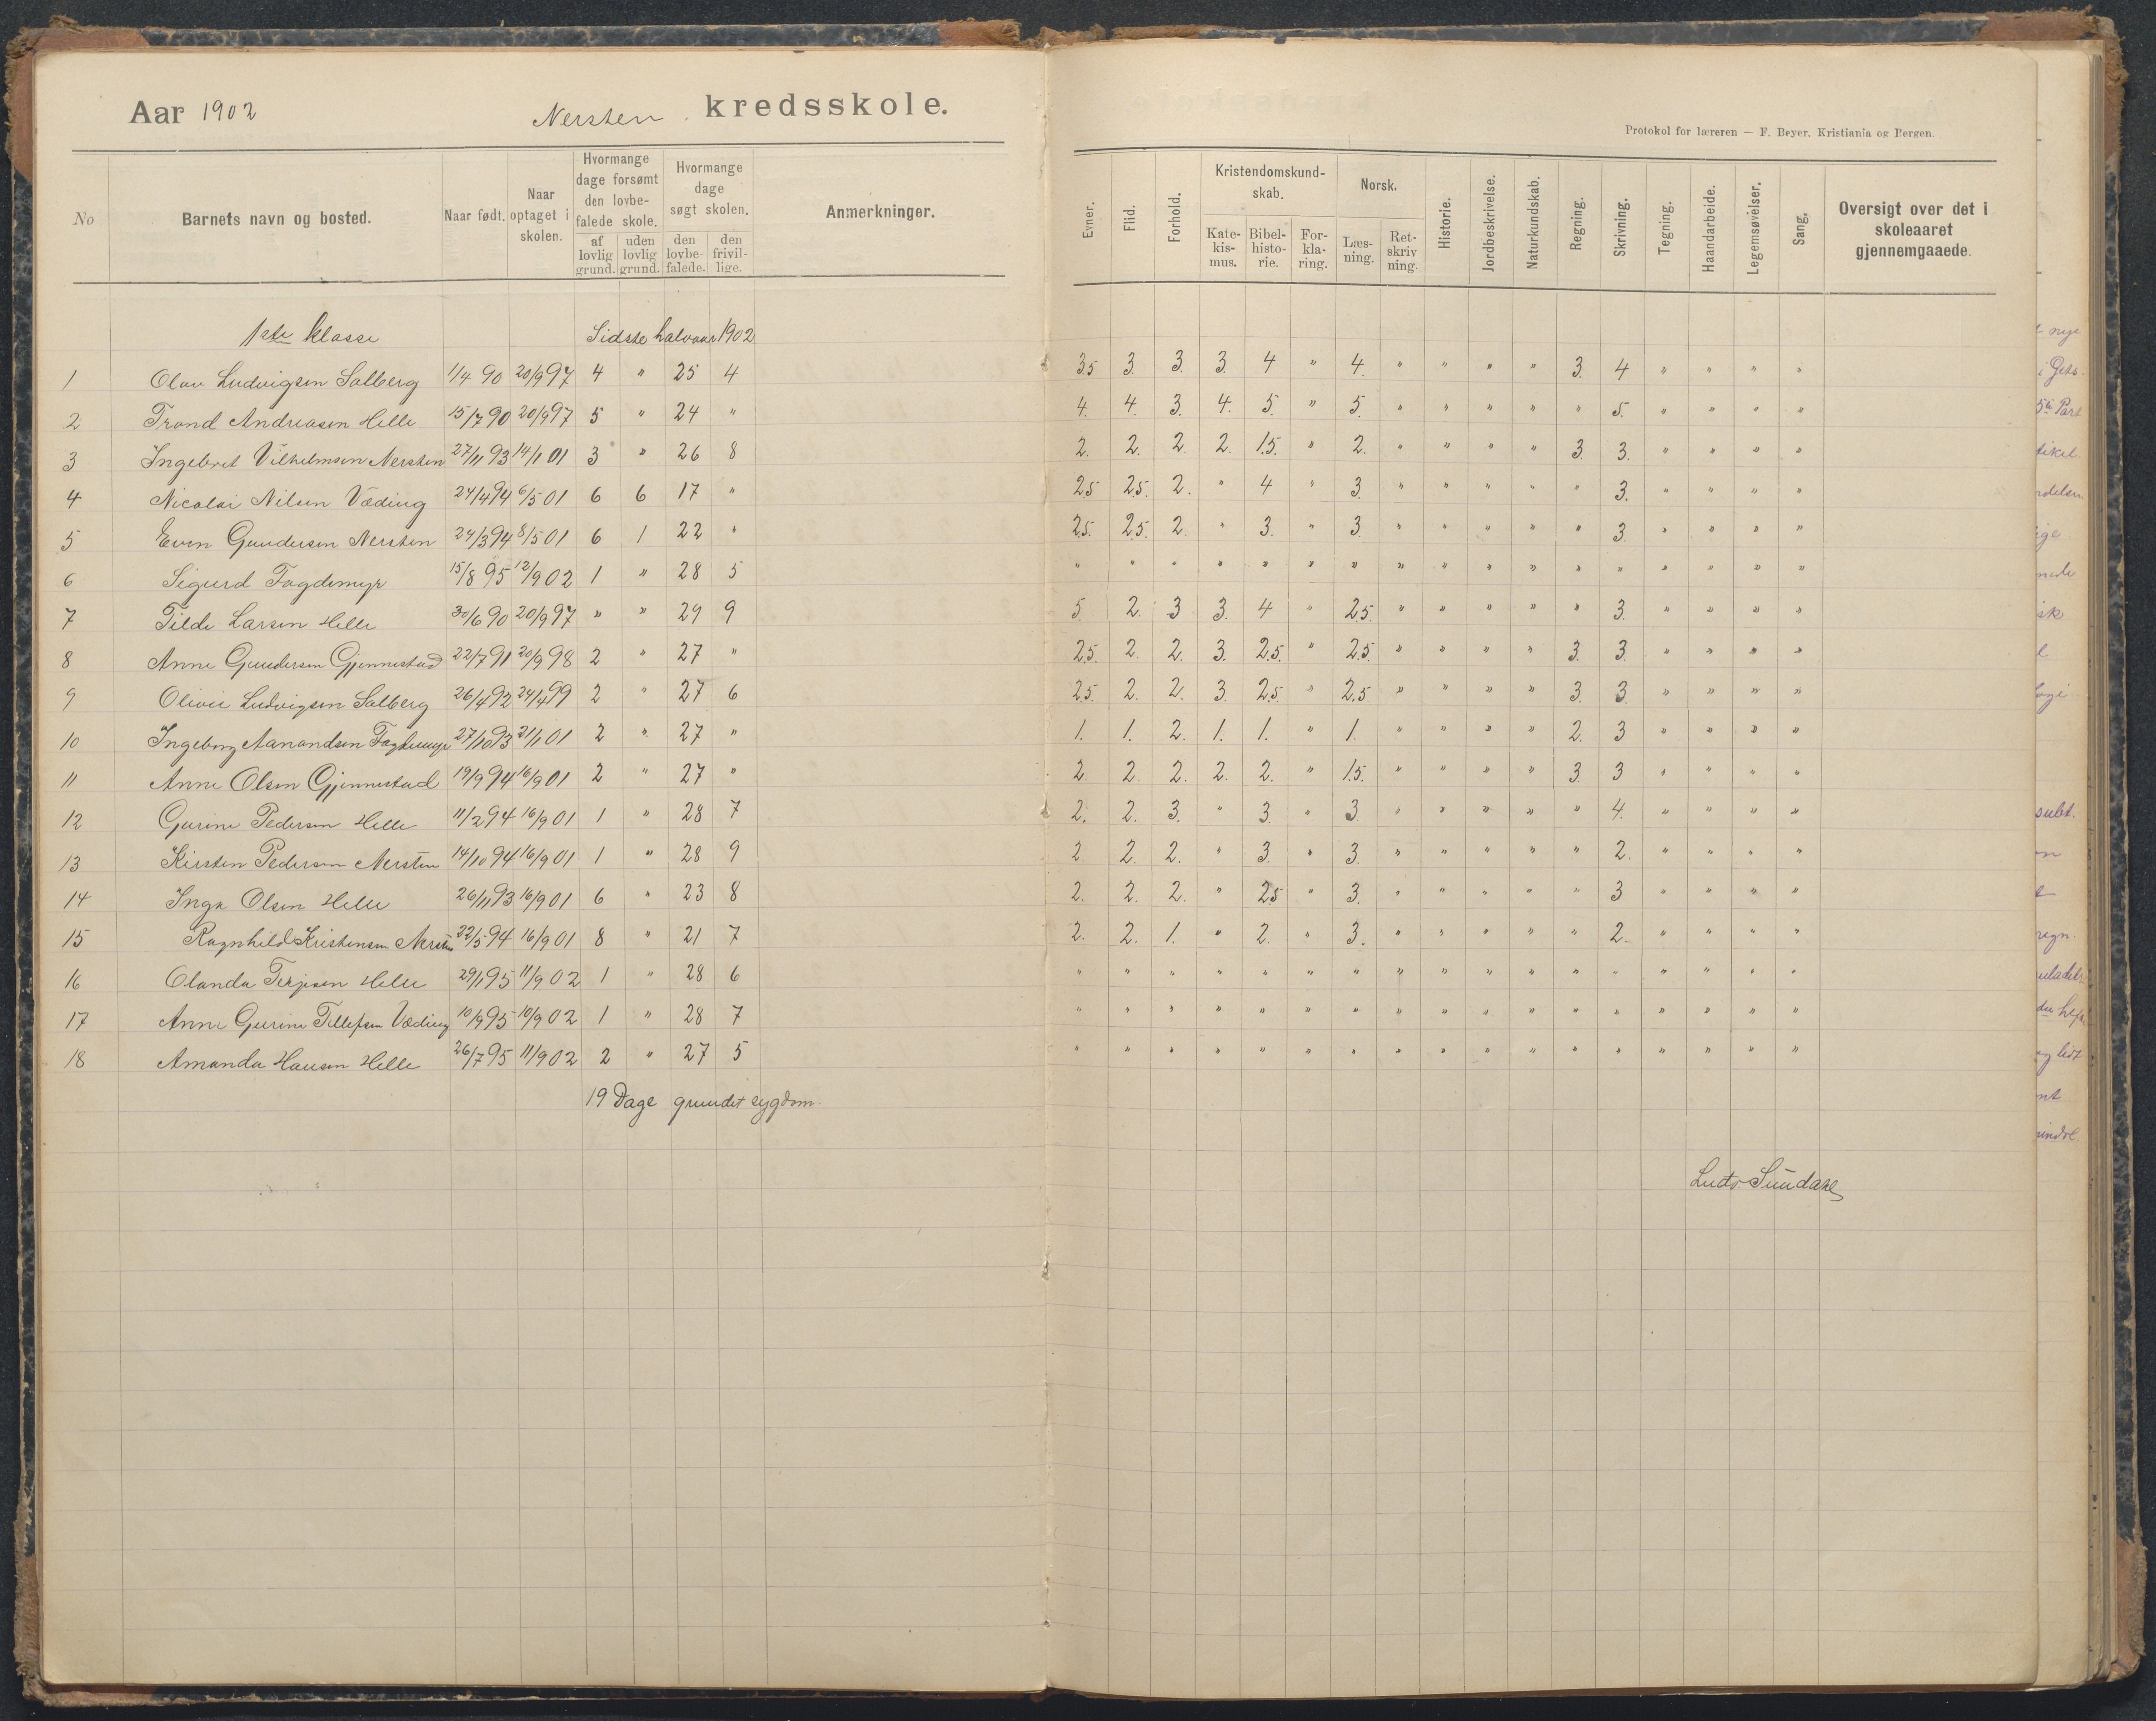 Aar 1902 Nersten kredsskole.
Protokol for læreren — F. Beyer, Kristiania og Bergen.
No Barnets navn og bosted. Naar født. Naar optaget i skolen. Hvormange dage forsømt den lovbefalede skole. af lovlig grund. uden lovlig grund. Hvormange dage søgt skolen. den lovbefalede. den frivillige. Anmerkninger.
Evner. Flid. Forhold. Kristendomskundskab. Katekismus. Bibelhistorie. Forklaring. Norsk. Læsning. Retskrivning. Historie. Jordbeskrivelse. Naturkundskab. Regning. Skrivning. Tegning. Haandarbeide. Legemsøvelser. Sang. Oversigt over det i skoleaaret gjennemgaaede.
1ste klasse Sidste halvaar 1902
1 Olav Ludvigsen Solberg 1/4 90 20/9 97 4 " 25 4 3.5 3. 3. 3. 4 " 4. " " " " 3. 4 " " " "
2 Trond Andreasen Helle 15/7 90 20/9 97 5 " 24 " 4. 4. 3. 4. 5. " 5. " " " " " 5. " " " "
3 Ingebret Vilhelmsen Nersten 27/11 93 14/1 01 3 " 26 8 2. 2. 2. 2. 1.5. " 2. " " " " 3. 3. " " " "
4 Nicolai Nilsen Væding 24/4 94 6/5 01 6 6 17 " 2.5 2.5. 2. " 4 " 3. " " " " " 3. " " " "
5 Even Gundersen Nersten 24/3 94 8/5 01 6 1 22 " 2.5. 2.5. 2. " 3. " 3. " " " " " 3. " " " "
6 Sigurd Fogdemyr 15/8 95 12/9 02 1 " 28 5 " " " " " " " " " " " " " " " " "
7 Tilde Larsen Helle 30/6 90 20/9 97 " " 29 9 5. 2. 3 3. 4 " 2.5. " " " " " 3. " " " "
8 Anne Gundersen Gjennestad 22/7 91 20/9 98 2 " 27 " 2.5. 2 2. 3. 2.5. " 2.5 " " " " 3. 3. " " " "
9 Olivie Ludvigsen Solberg 26/4 92 24/4 99 2 " 27 6 2.5. 2. 2. 3. 2.5 " 2.5 " " " " 3. 3. " " " "
10 Ingeborg Aanondsen Fogdemyr 27/10 93 21/1 01 2 " 27 " 1. 1. 2. 1. 1. " 1. " " " " 2. 3 " " " "
11 Anne Olsen Gjennestad 19/9 94 16/9 01 2 " 27 " 2. 2. 2. 2. 2. " 1.5. " " " " 3. 3 " " " "
12 Gurine Pedersen Helle 11/2 94 16/9 01 1 " 28 7 2. 2. 3. " 3. " 3. " " " " " 4. " " " "
13 Kirsten Pedersen Nersten 14/10 94 16/9 01 1 " 28 9 2. 2. 2. " 3. " 3. " " " " " 2. " " " "
14 Inga Olsen Helle 26/11 93 16/9 01 6 " 23 8 2. 2. 2. " 2.5 " 3. " " " " " 3 " " " "
15 Ragnhild Kristensen Nersten 22/5 94 16/9 01 8 " 21 7 2. 2. 1. " 2. " 3. " " " " " 2. " " " "
16 Olanda Terjesen Helle 29/1 95 11/9 02 1 " 28 6 " " " " " " " " " " " " " " " " "
17 Anne Gurine Tellefsen Væding 10/9 95 10/9 02 1 " 28 7 " " " " " " " " " " " " " " " " "
18 Amanda Hansen Helle 26/7 95 11/9 02 2 " 27 5 " " " " " " " " " " " " " " " " "
19 Dage grundet sygdom.
Ludv Sundahl